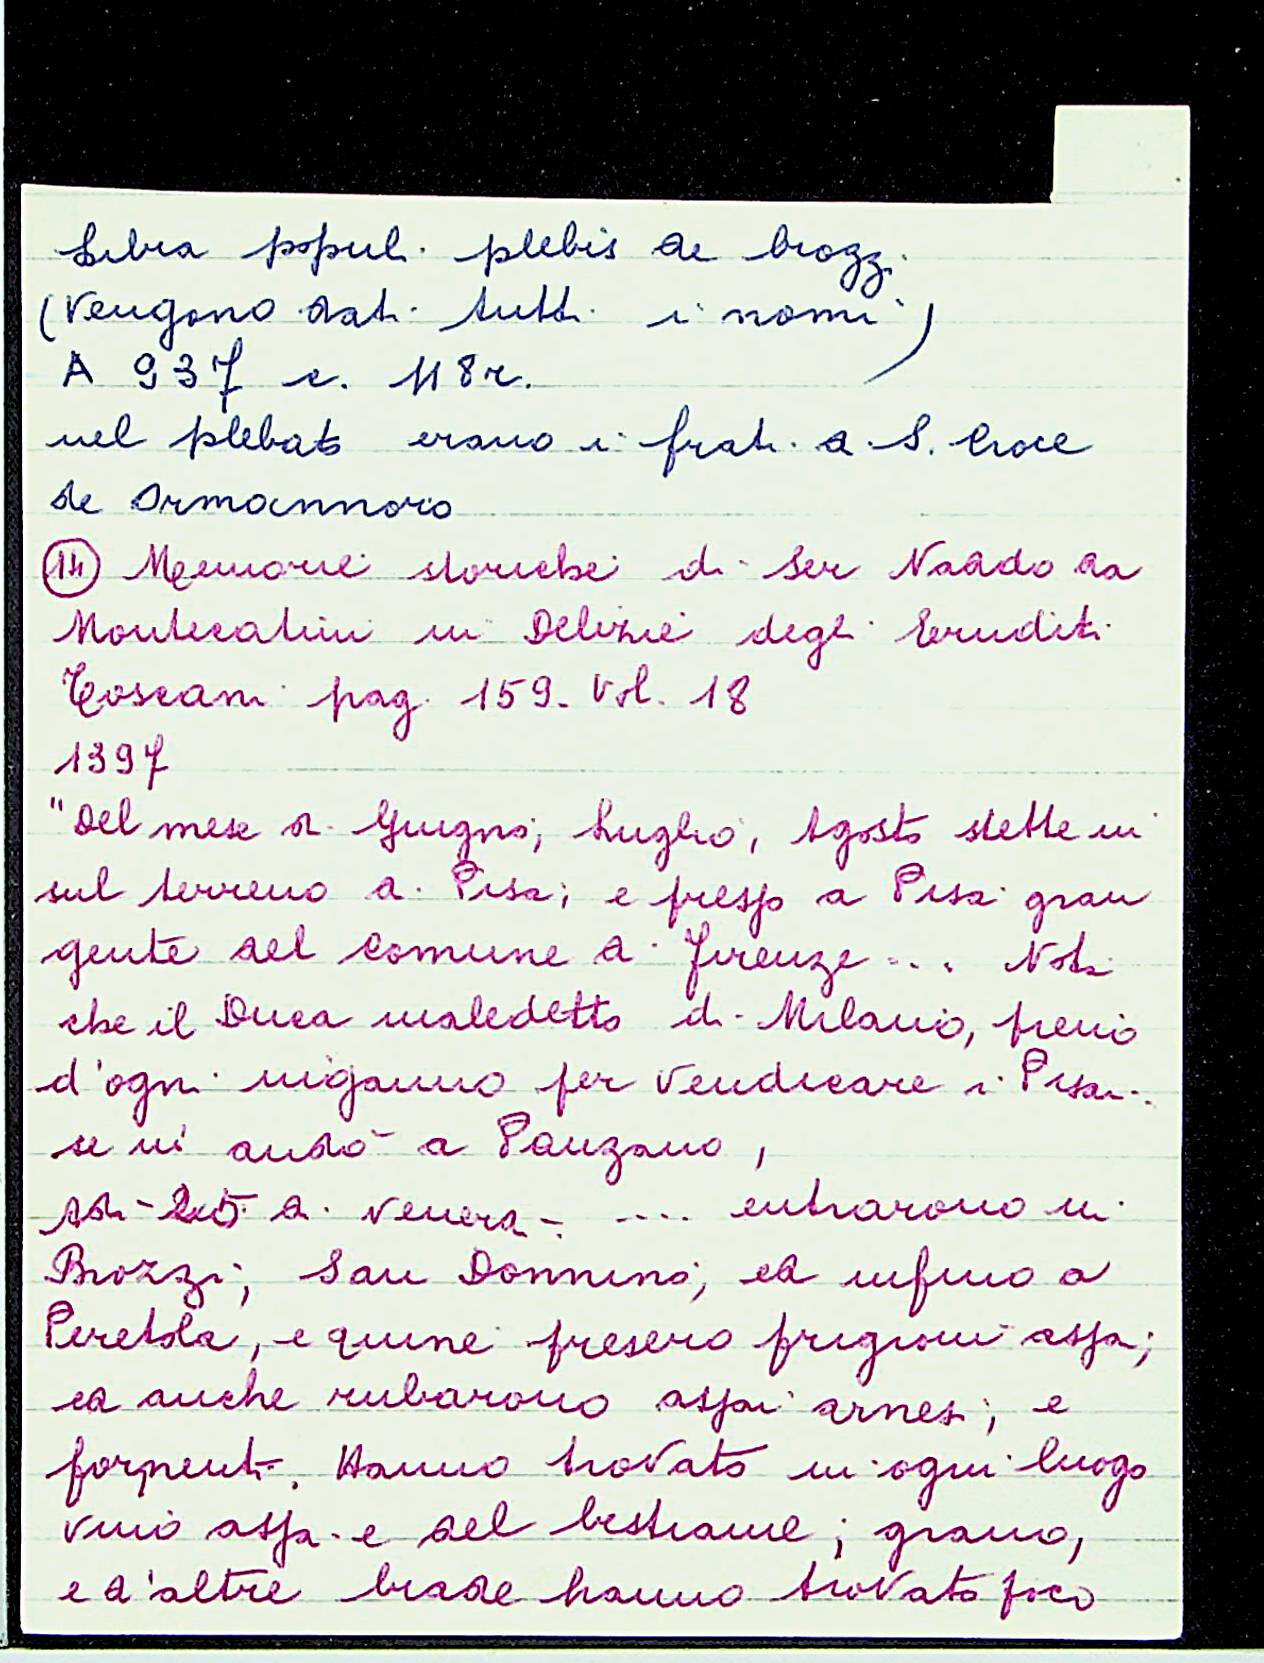 Libra popul. plebis de brozzi
(Vengono dati tutti i nomi)
A 937 c. 118r.
nel plebato erano i frati di S. Croce
de Ormannoro
(14) Memorie storiche di Ser Naddo da
Montecatini in Delizie degli Eruditi
Toscani pag. 159. Vol. 18
1397
"Del mese di Giugno, Luglio, Agosto stette in
sul terreno di Pisa; e presso a Pisa gran
gente del Comune di Firenze .... Noti
che il Duca maledetto di Milano, pieno
d'ogni inganno per vendicare i Pisani
se ni andò a Panzano,
adi - 25 di venerdì - .... entrarono in
Brozzi, San Donnino, ed infino a
Peretola, e quine presero prigioni assai;
ed anche rubarono assai arnesi, e
Hanno trovato in ogni luogo
vino assai e del bestiame; grano,
e d'altre biade hanno trovato poco